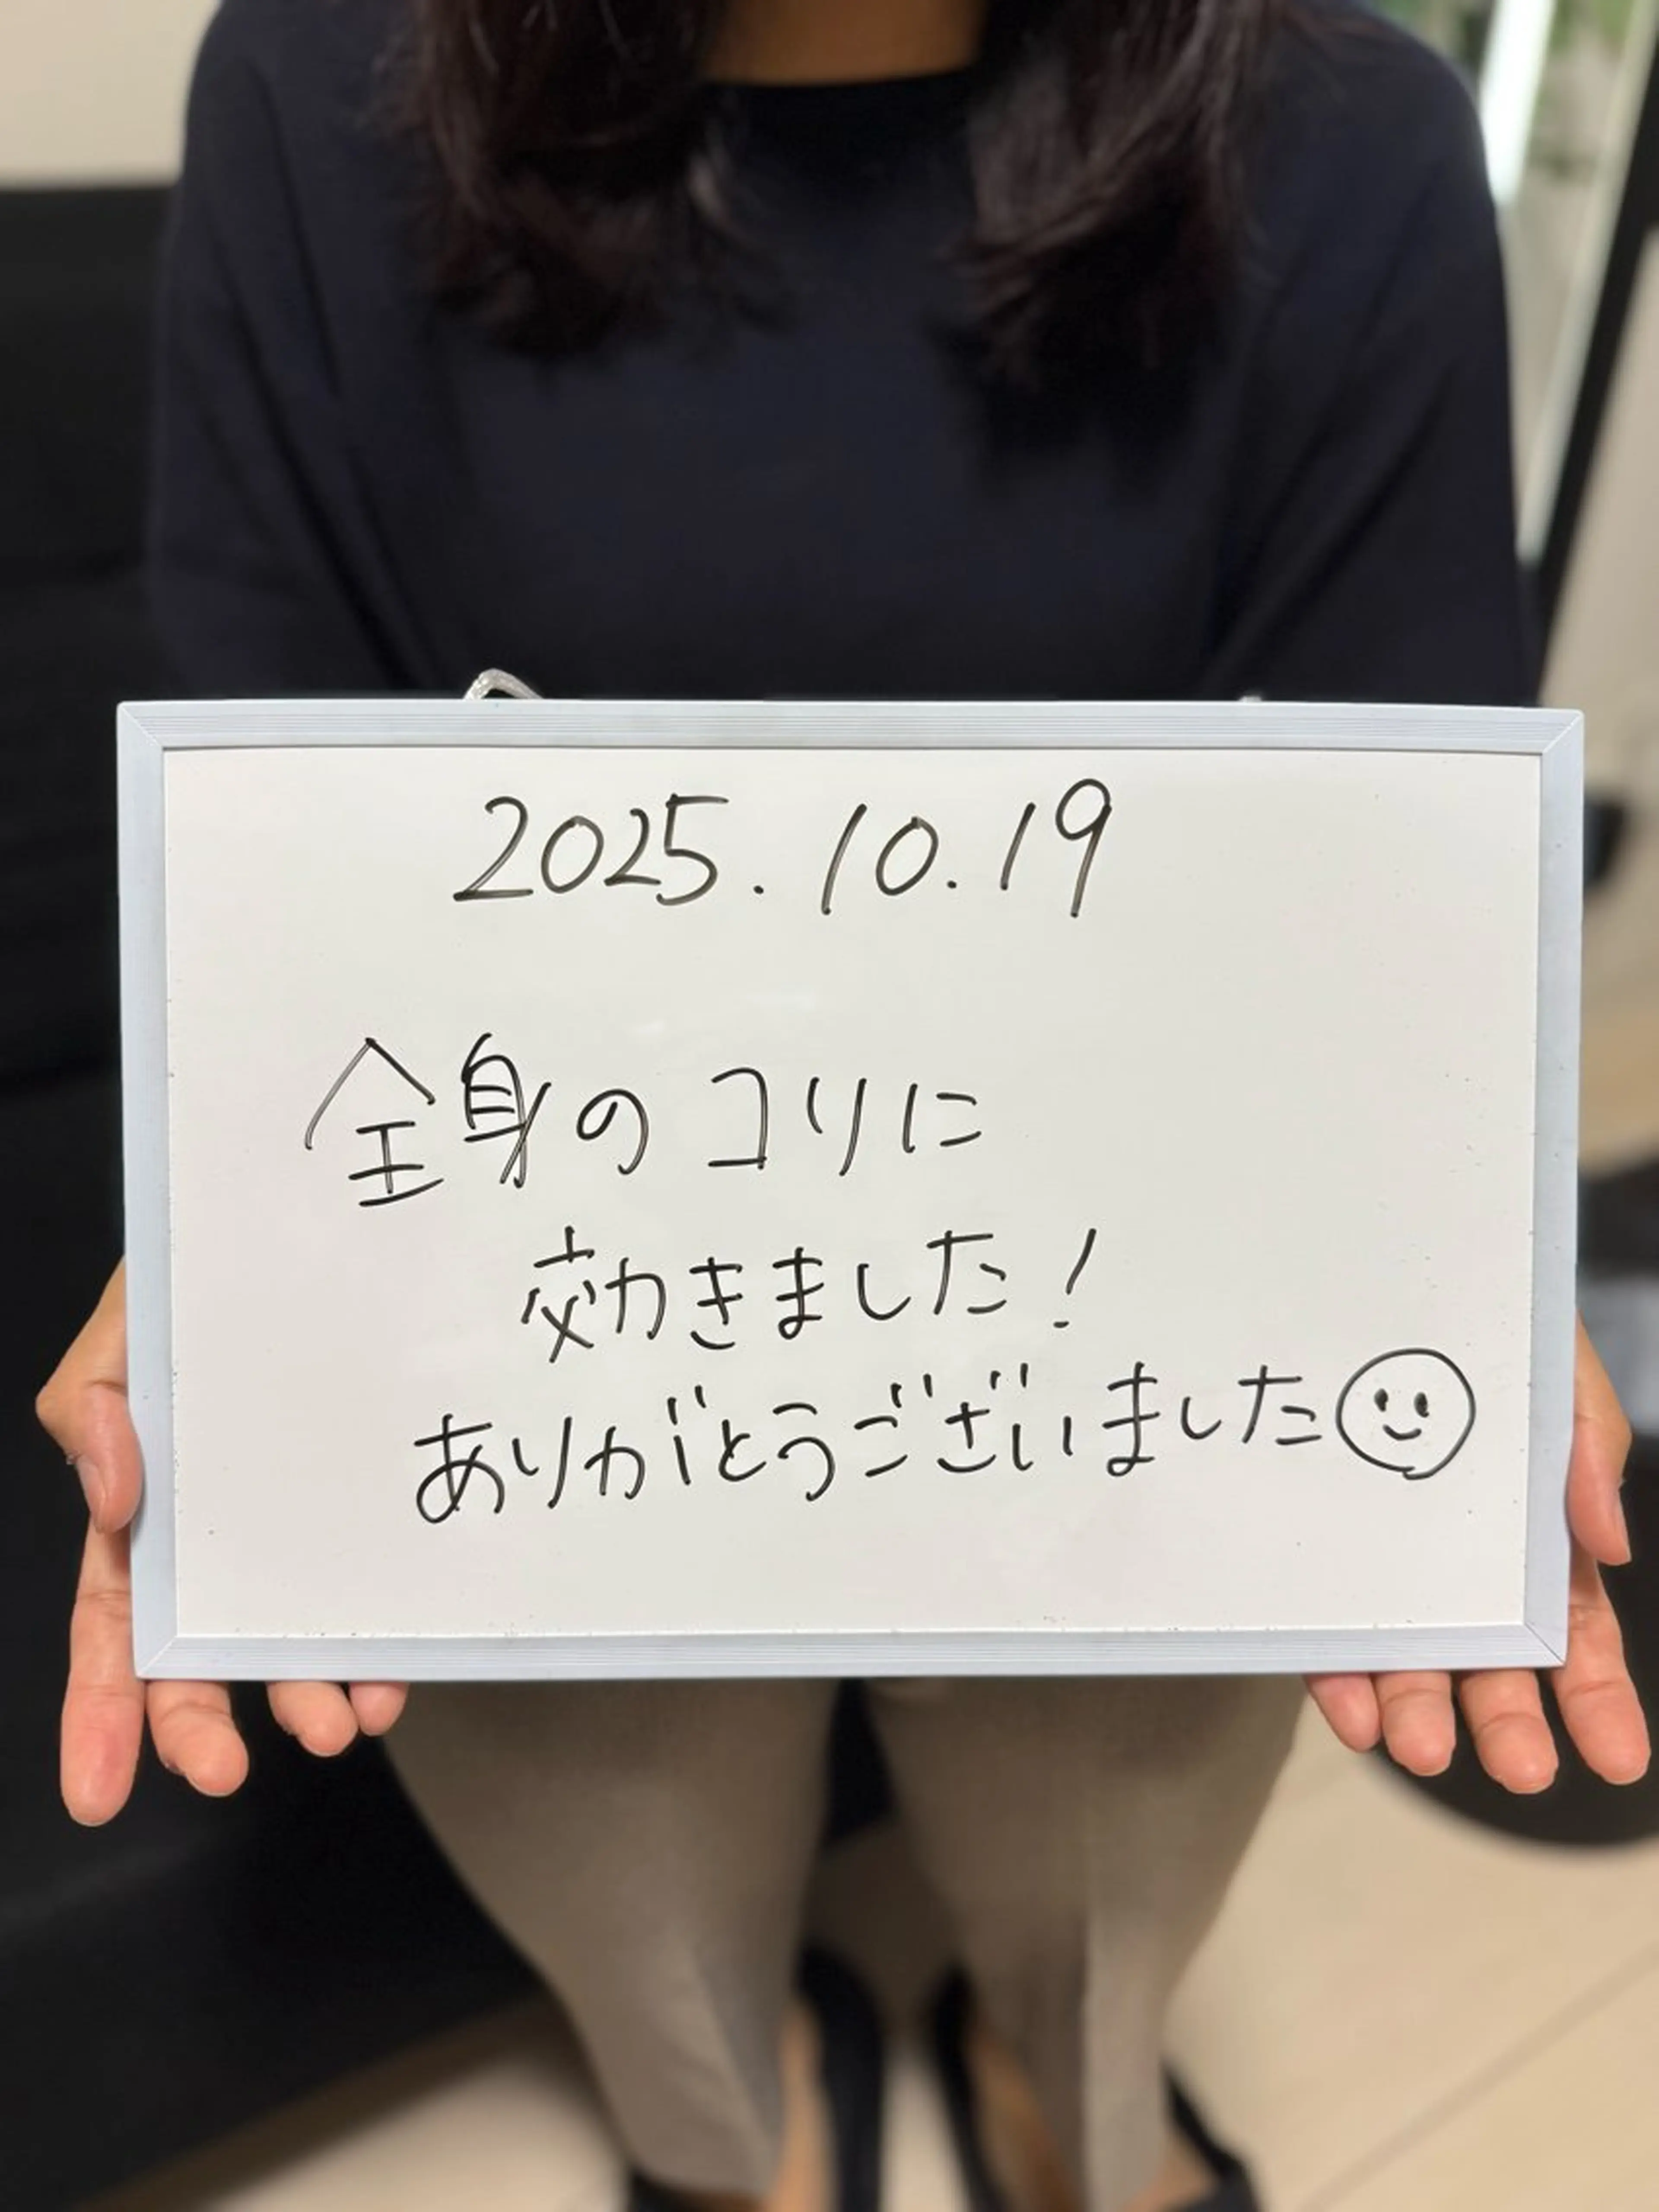 2025.10.19
全身のコリに
効きました!
ありがとうございました